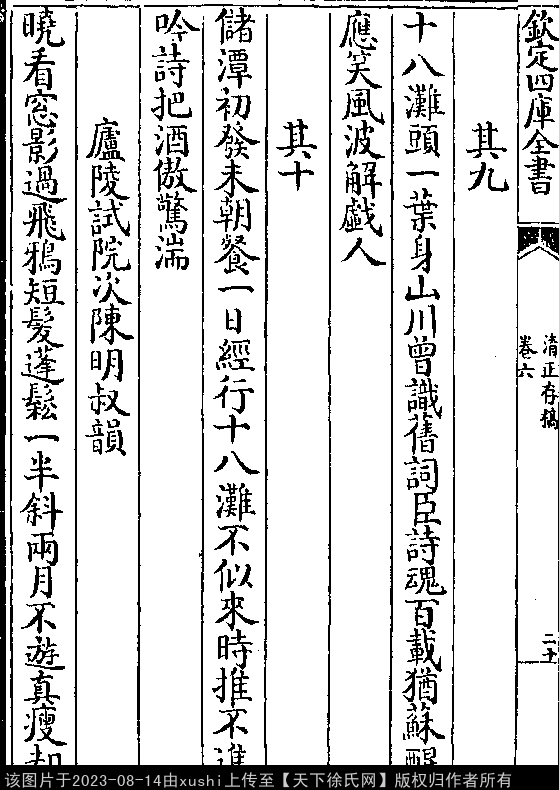 欽定四庫全書
清正存稿
卷六
二十
其九
十八灘頭一葉身山川曾識舊詞臣詩魂百載猶蘇醒
應笑風波解戲人
其十
儲潭初發未朝餐一日經行十八灘不似來時推不進
吟詩把酒傲驚湍
廬陵試院次陳明叔韻
曉看窓影過飛鴉短髮蓬鬆一半斜兩月不遊真瘦却
该图片于2023-08-14由xushi上传至【天下徐氏网】版权归作者所有